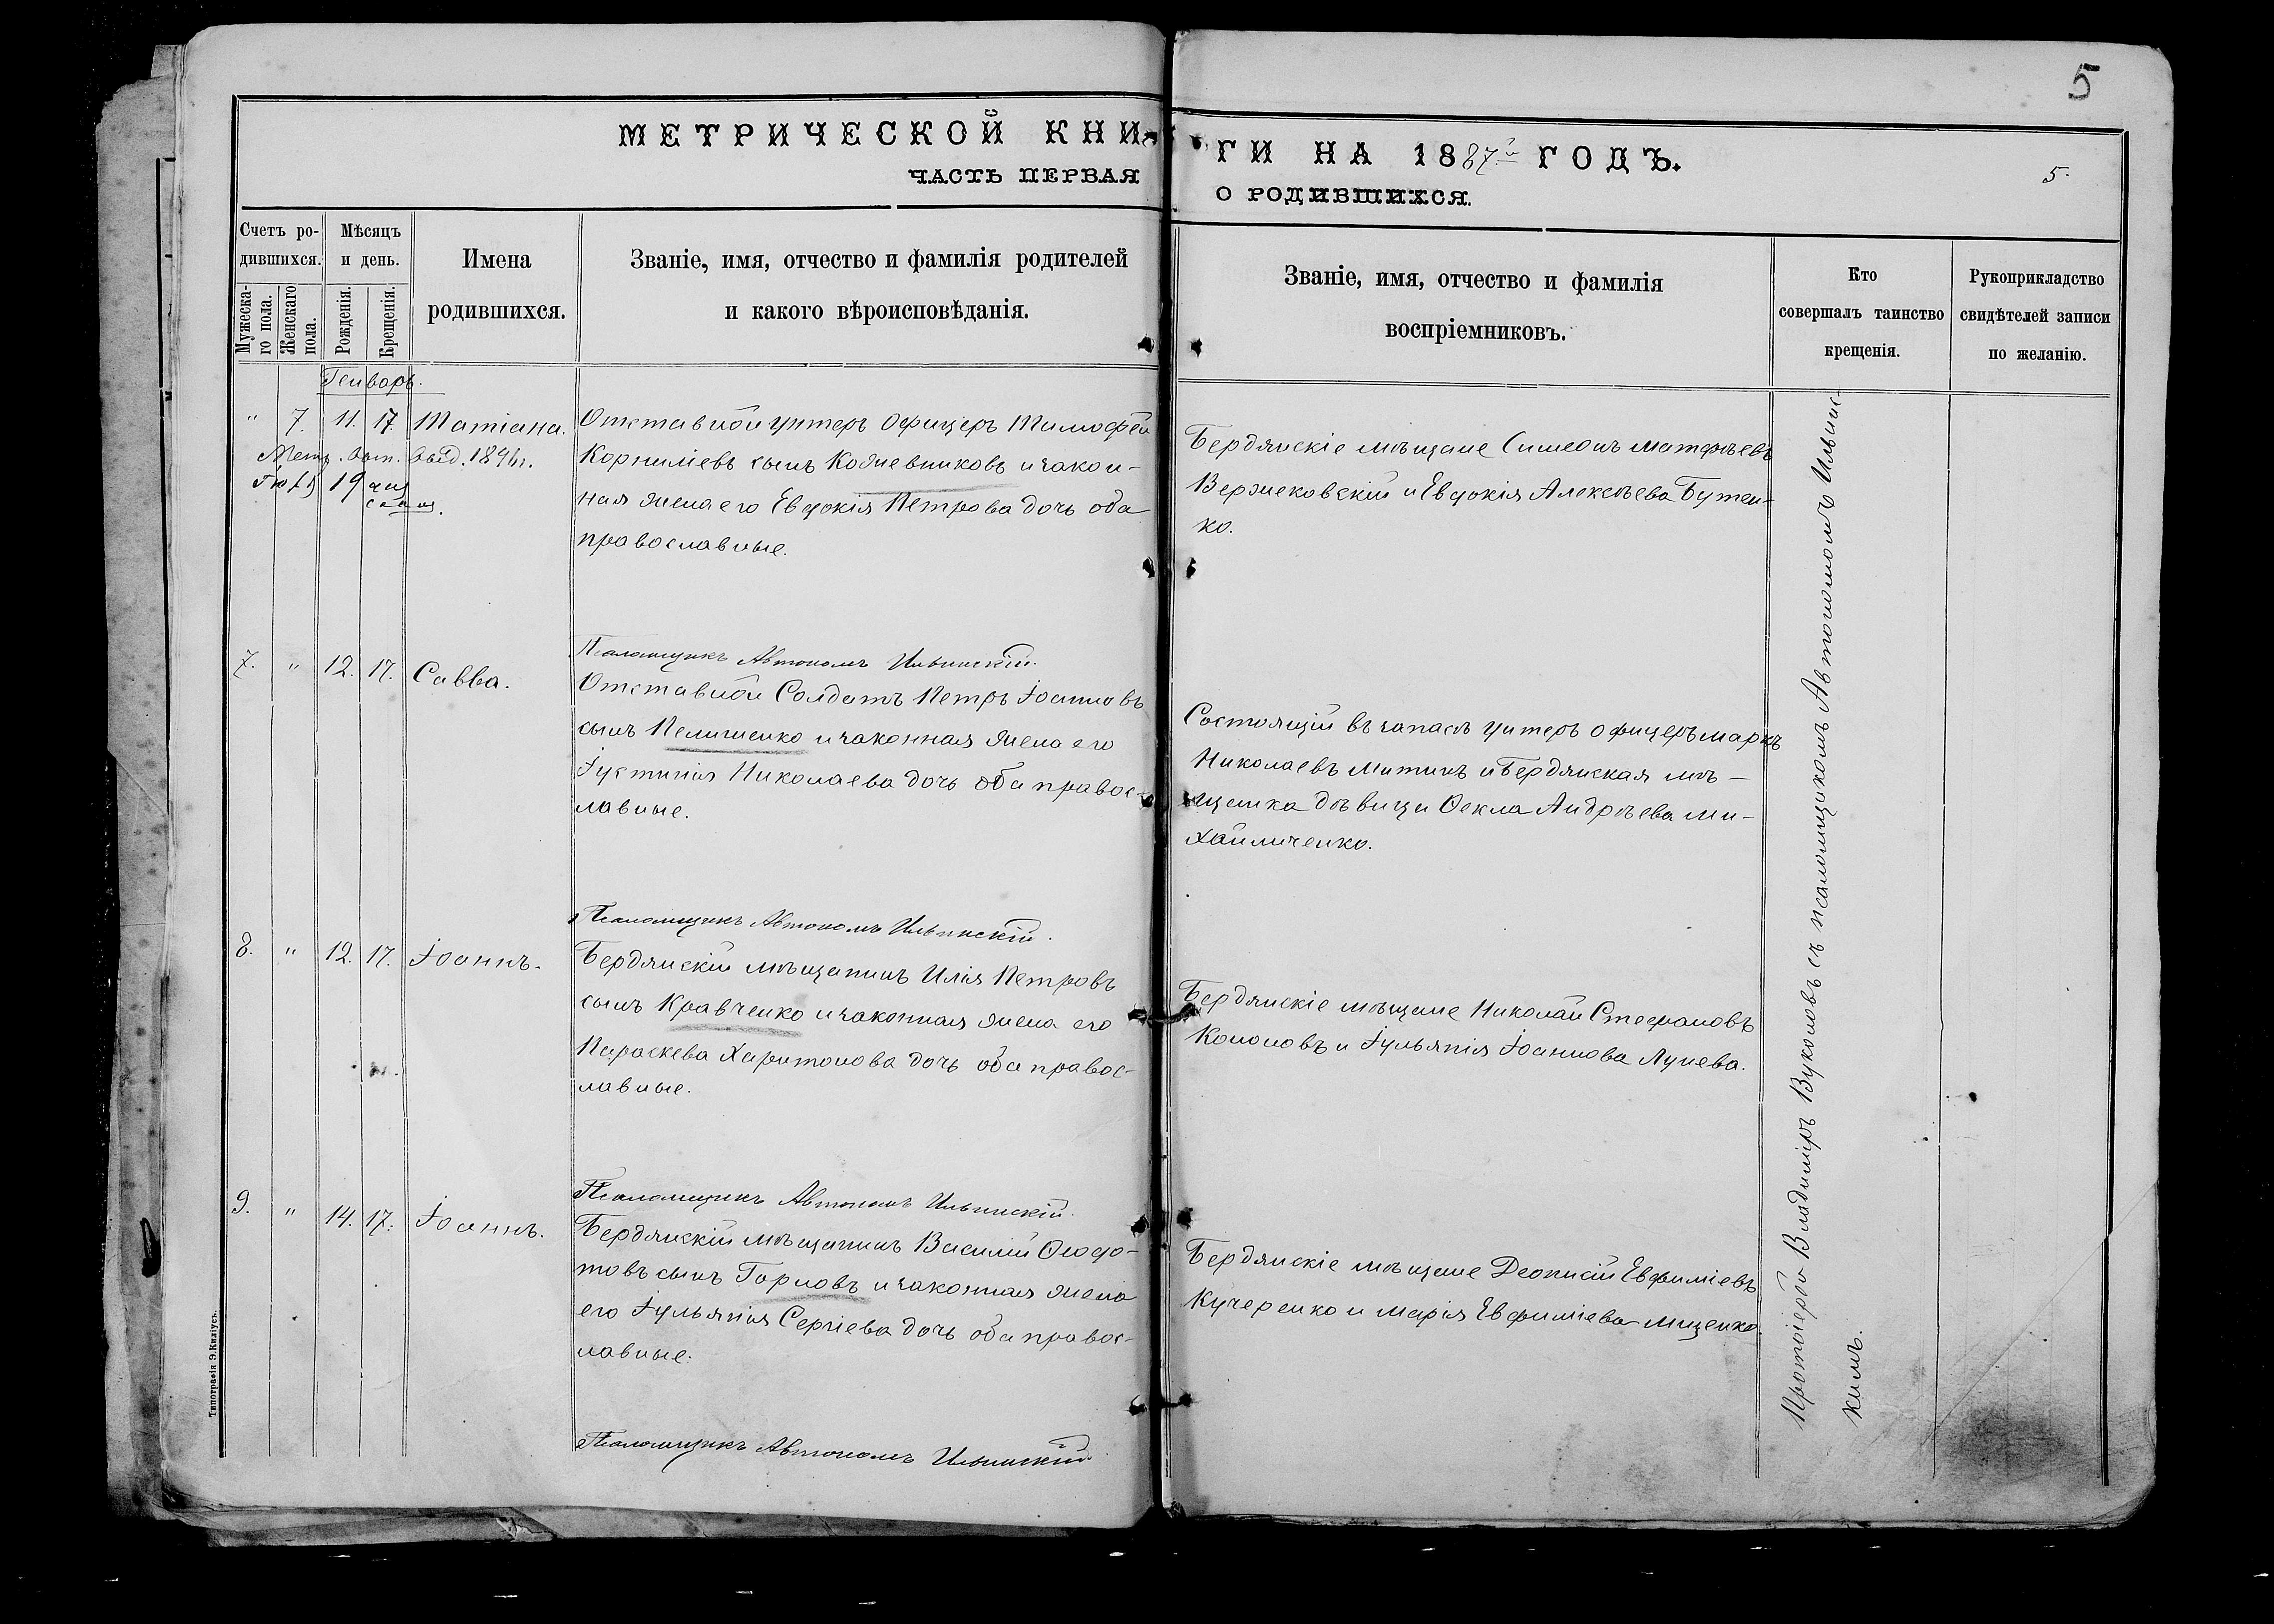 5
МЕТРИЧЕСКОЙ КНИ-
ЧАСТЬ ПЕРВАЯ
ГИ НА 1887 ГОДЪ.
О РОДИВШИХСЯ.
5.
Счетъ ро-
дившихся.
Мужеска-
го пола.
Женскаго
пола.
Мѣсяцъ
и день.
Рожденія.
Крещенія.
Имена
родившихся.
Званіе, имя, отчество и фамилія родителей
и какого вѣроисповѣданія.
Званіе, имя, отчество и фамилія
воспріемниковъ.
Кто
совершалъ таинство
крещенія.
Рукоприкладство
свидѣтелей записи
по желанію.
Генварь.
" 7. 11. 17. Татіана.
Метр. вып. выд. 1896г.
19
Отставной унтеръ Офицеръ Тимофей
Корниліевъ сынъ Кожевниковъ и закон-
ная жена его Евдокія Петрова дочь оба
православные.
Бердянскіе мѣщане Симеонъ Матфѣевъ
Вержековскій и Евдокія Алексѣева Бутен-
ко.
Псаломщикъ Автономъ Ильинскій.
7. " 12. 17. Савва.
Отставной Солдатъ Петръ Іоанновъ
сынъ Пелишенко и законная жена его
Іустинія Николаева дочь оба правос-
лавные.
Состоящій въ запасѣ унтеръ офицеръ Маркъ
Николаевъ Митинъ и Бердянская мѣ-
щанка дѣвица Ѳекла Андрѣева Ми-
хайличенко.
Псаломщикъ Автономъ Ильинскій.
8. " 12. 17. Іоаннъ.
Бердянскій мѣщанинъ Илія Петровъ
сынъ Кравченко и законная жена его
Параскева Харитонова дочь оба правос-
лавные.
Бердянскіе мѣщане Николай Стефановъ
Кононовъ и Іульянія Іоаннова Лунева.
Псаломщикъ Автономъ Ильинскій.
9. " 14. 17. Іоаннъ.
Бердянскій мѣщанинъ Василій Ѳеодо-
товъ сынъ Горловъ и законная жена
его Іульянія Сергіева дочь оба правос-
лавные.
Бердянскіе мѣщане Діонисій Евфиміевъ
Кучеренко и Марія Евфиміева Мищенко.
Псаломщикъ Автономъ Ильинскій.
Протоіерей Владиміръ Вуколовъ съ псаломщикомъ Автономомъ Ильинс-
кимъ.
Типографія Э. Киліусъ.